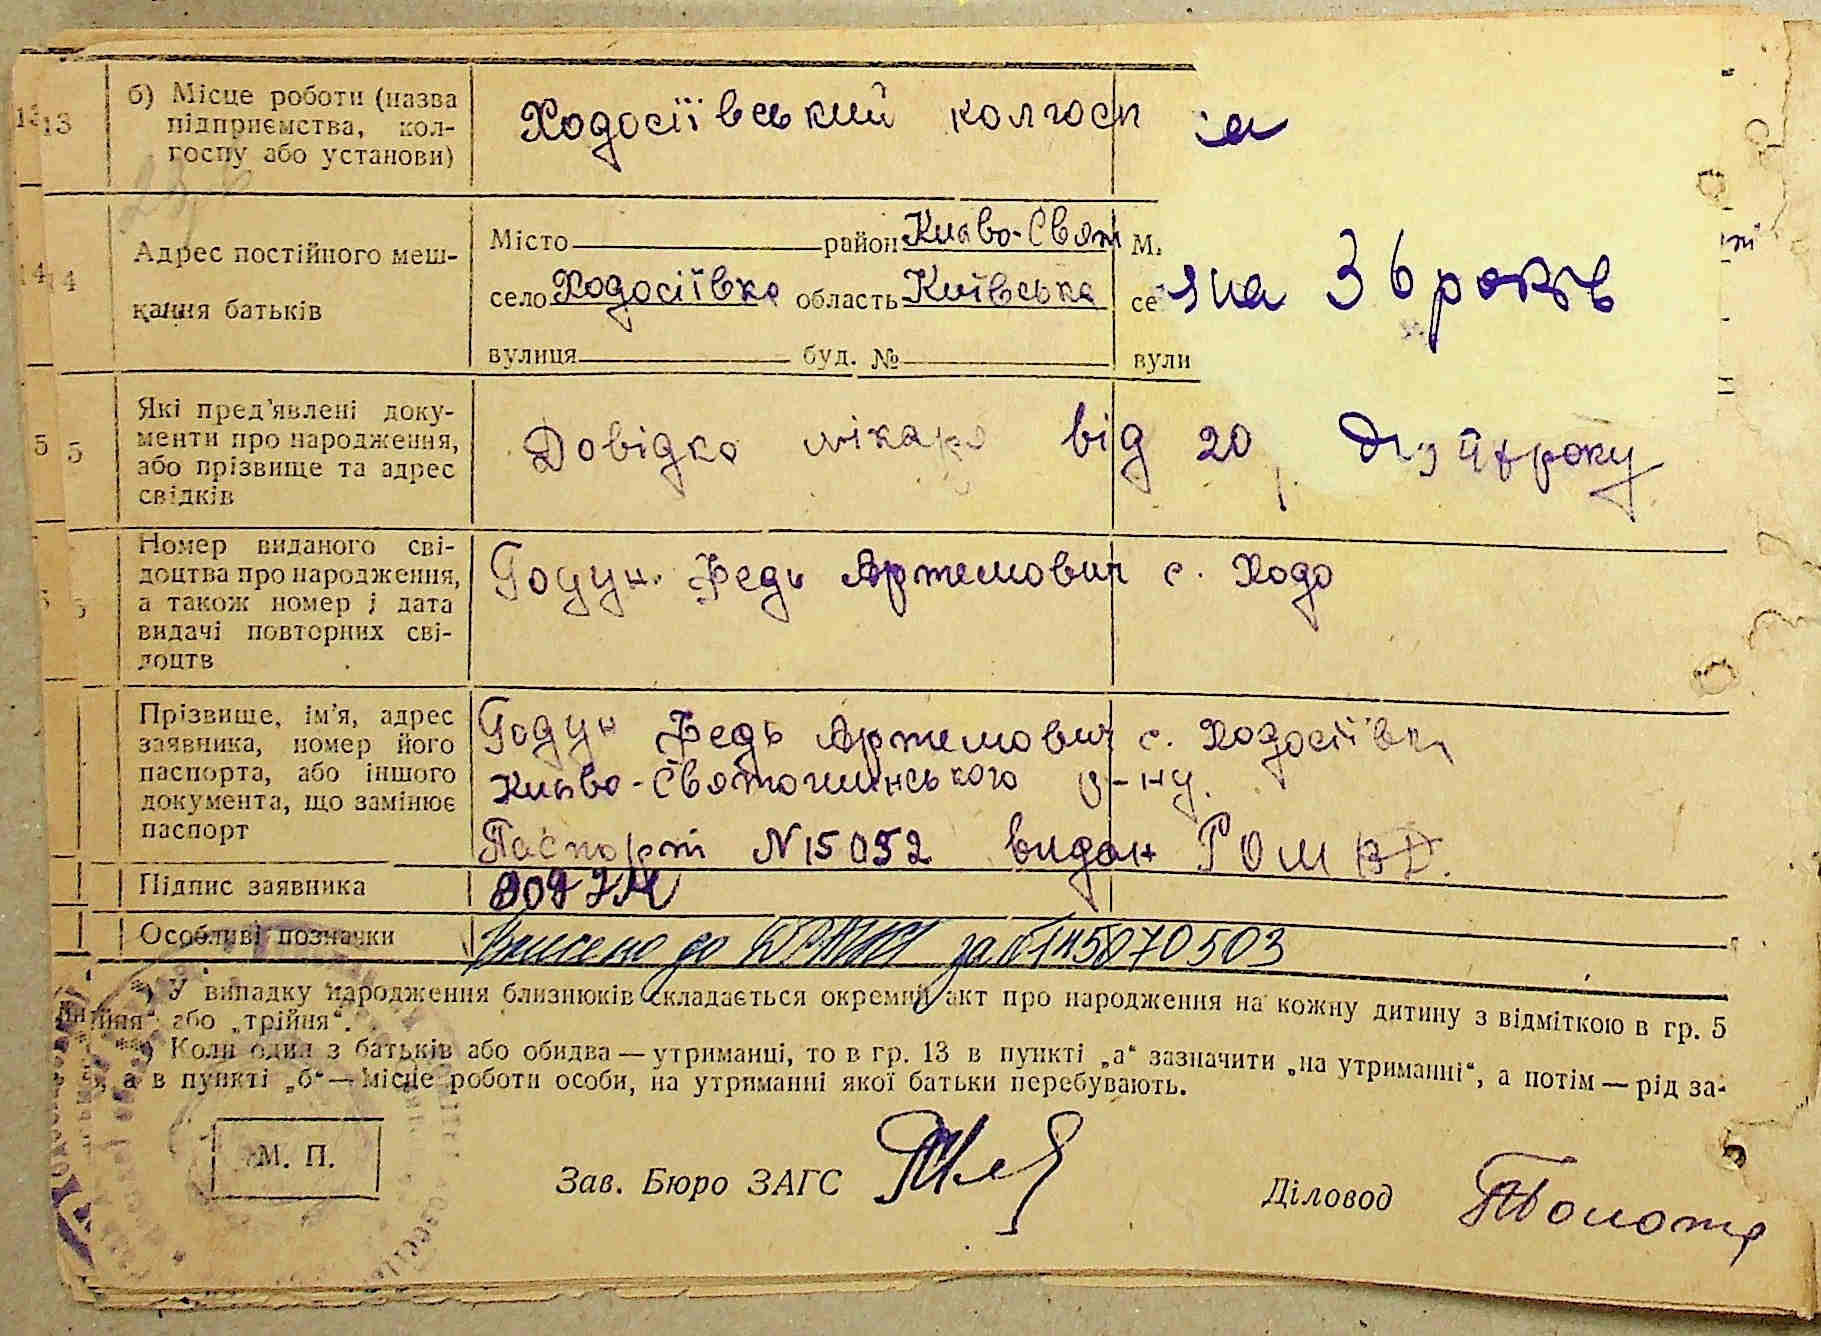 13 13 б) Місце роботи (назва
підприємства, кол-
госпу або установи)
Ходосіївський колгосп
Адрес постійного меш-
кання батьків
Місто район Києво-Свят М.
14 4 село Ходосіївка область Київська се яна 36 років
вулиця буд. № вули
5 5 Які пред’явлені доку-
менти про народження,
або прізвище та адрес
свідків
Довідка лікаря від 20 року
Номер виданого сві-
доцтва про народження,
а також номер і дата
видачі повторних сві-
доцтв
Годун Федь Артемович с. Ходо
Прізвище, ім’я, адрес
заявника, номер його
паспорта, або іншого
документа, що замінює
паспорт
Годун Федь Артемович с. Ходосіївка
Києво-Святошинського р-ну.
Паспорт N 15052 видан РОМВД.
Підпис заявника Годун
Особливі позначки Внесено до ДРАЦС за
*) У випадку народження близнюків складається окремий акт про народження на кожну дитину з відміткою в гр. 5
двійня“ або „трійня“.
**) Коли один з батьків або обидва — утриманці, то в гр. 13 в пункті „а“ зазначити „на утриманні“, а потім — рід за-
, а в пункті „б“ — місце роботи особи, на утриманні якої батьки перебувають.
М. П.
Зав. Бюро ЗАГС
Діловод